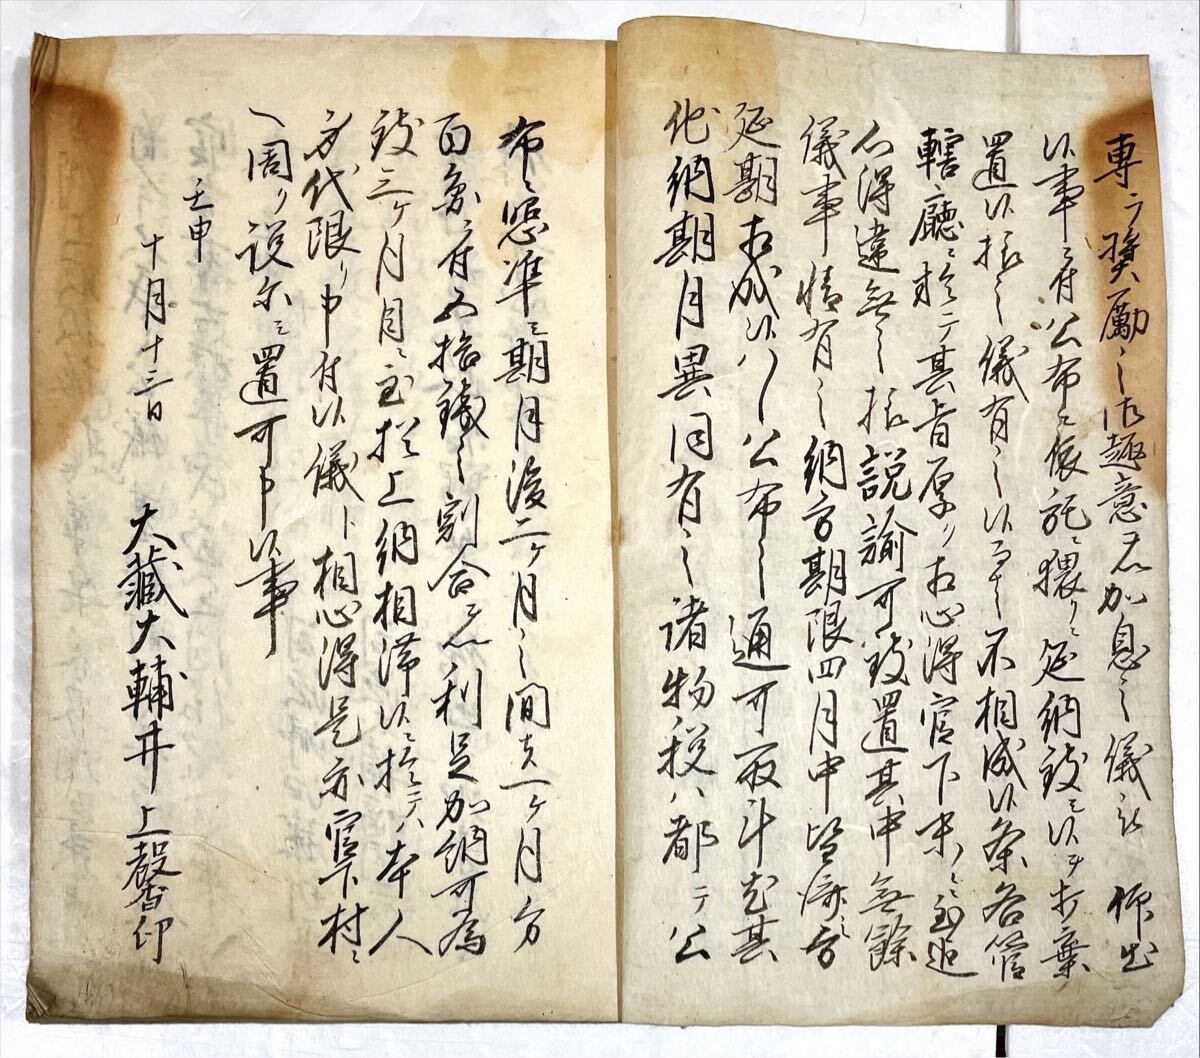 専ラ奨励之御趣意ニ而加息之儀被 仰出
候事ニ付公布ニ依託猥リニ延納致シ候ヲ打棄
置候抔之儀有之候而者不相成候条各管
轄庁ニ於テ其旨厚ク相心得官下末々ニ至迄
心得違無之様説諭可致置其中無余
儀事情有之納方期限四月中皆済之方
延期相成候ハヽ公布之通可取斗尤其
他納期月異同有之諸物税ハ都テ公
布ニ照準シ期月後二ケ月之間者一ケ月分
百円ニ付五拾銭之割合ニ而利足加納可為
致三ケ月目ニ至猶上納相滞候ニ於テハ本人
身代限リ申付候儀ト相心得是亦官下村々
ヘ周ク説示シ置可申候事
壬申
十月十三日
大蔵大輔井上馨印